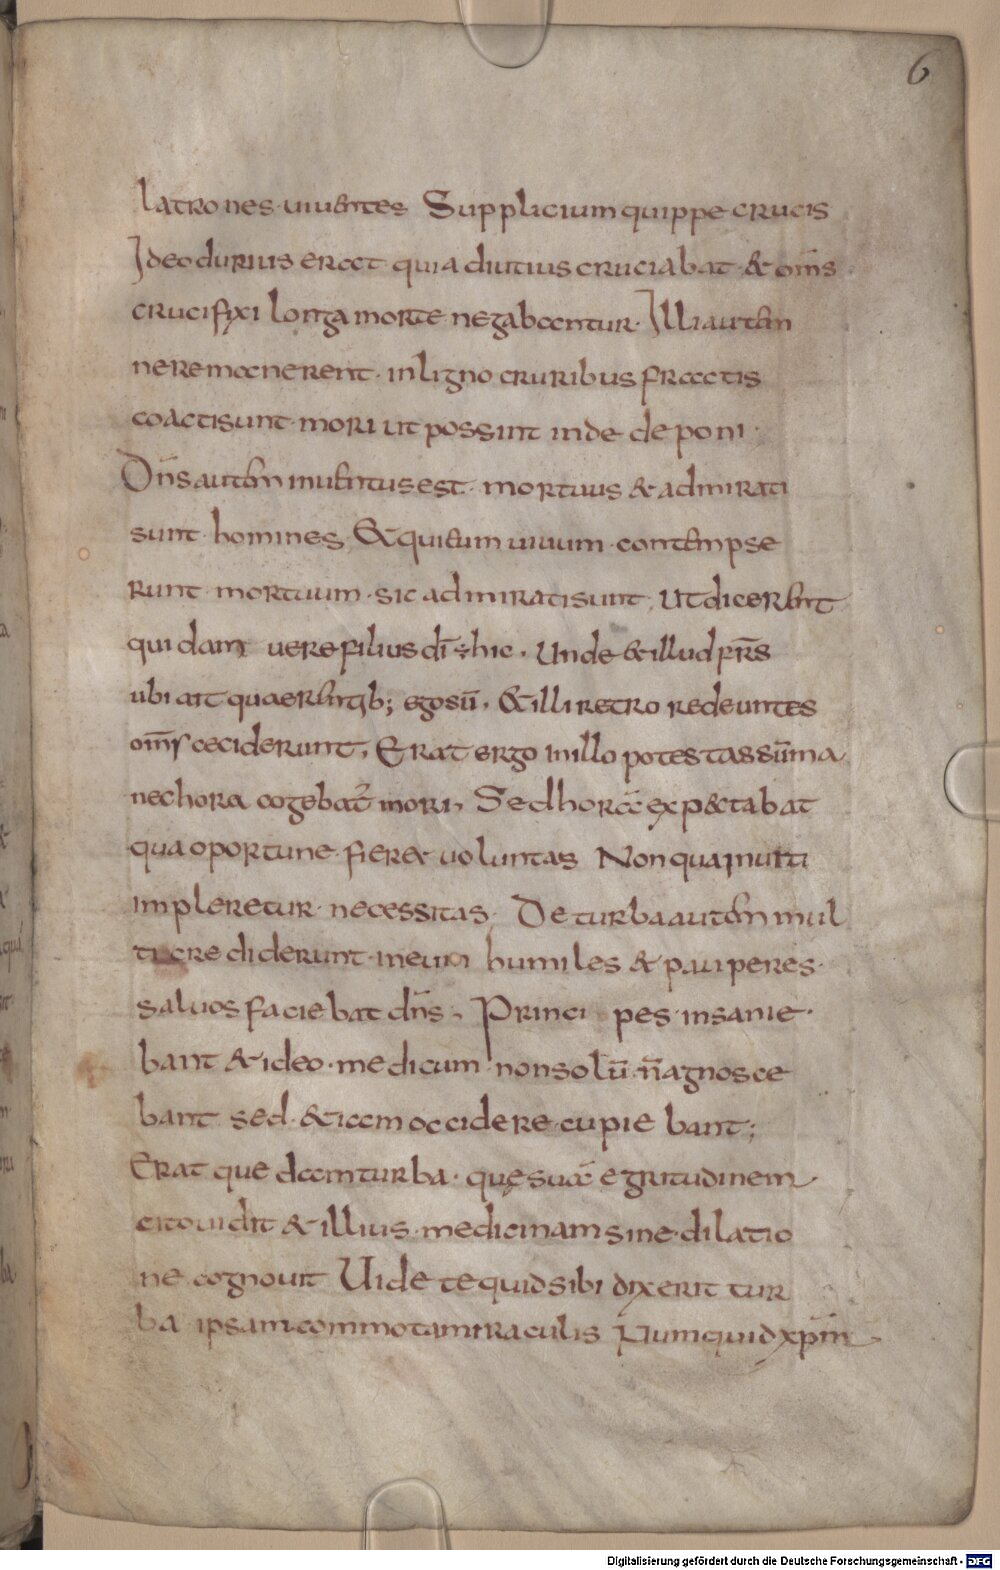 6
latrones · viventes Supplicium quippe crucis
Ideo durius erat quia diutius cruciabat · & om̄s
crucifixi longa morte negabantur · Illi autem
ne remanerent · in ligno cruribus fractis
coacti sunt · mori ut possint inde deponi ·
Dn̄s autem inventus est · mortuus & admirati
sunt · homines & qui eum vivum · contempse
runt · mortuum · sic admirati sunt Ut dicerent
quidam vere filius dī ÷ hic · Unde & illud fr̄s
ubi ait quaerentib; ego sū · & illi retro redeuntes
om̄s ceciderunt, Erat ergo in illo potestas sūma
nec hora cogebat̄ mori, Sed horā expectabat
qua oportune · fier& voluntas Non qua inviti
impleretur · necessitas, De turba autem mul
ti crediderunt · in eum humiles & pauperes ·
salvos faciebat dn̄s, Principes · insanie ·
bant & ideo · medicum · non solū · n̄ agnosce
bant · sed · &iam occidere cupiebant;
Erat quedam turba · quę suā egritudinem
cito vidit & illius · medicinam sine · dilatio
ne cognovit Uidete quid sibi dixerit tur
ba ipsam commota miraculis Numquid xp̄m
Digitalisierung gefördert durch die Deutsche Forschungsgemeinschaft - DFG